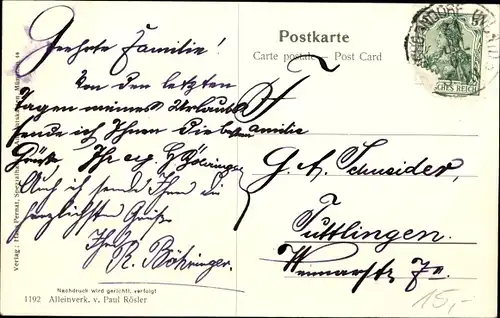 Postkarte
Carte postale — Post Card
Geehrte Familie!
Von den letzten
Tagen meines Urlaubs
sende ich Ihnen die besten
Grüße. Ihr erg. Böhringer
Auch ich sende Ihnen die
herzlichsten Grüße
Ihr
R. Böhringer.
Familie
G. A. Schneider,
Tuttlingen.
Weimarstr. 7
SCHES REICH
5
Nachdruck wird gerichtl. verfolgt
1192 Alleinverk. v. Paul Rösler
Verlag: Hans Pernat,
15,-